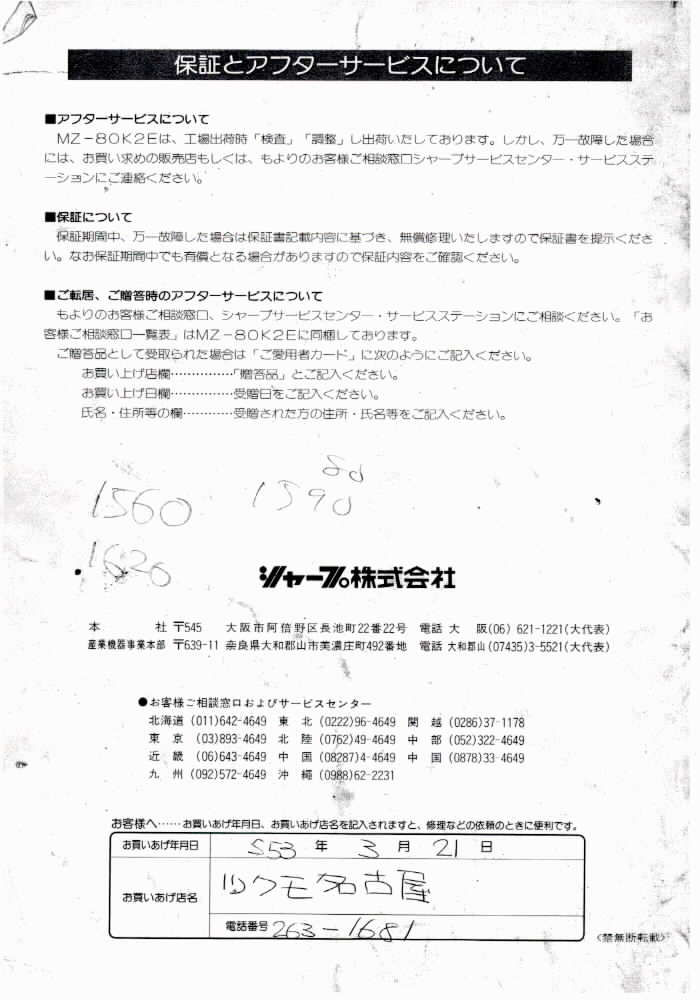 保証とアフターサービスについて
■アフターサービスについて
MZ－80K2Eは、工場出荷時「検査」「調整」し出荷いたしております。しかし、万一故障した場合
には、お買い求めの販売店もしくは、もよりのお客様ご相談窓口シャープサービスセンター・サービスステ
ーションにご連絡ください。
■保証について
保証期間中、万一故障した場合は保証書記載内容に基づき、無償修理いたしますので保証書を提示くださ
い。なお保証期間中でも有償となる場合がありますので保証内容をご確認ください。
■ご転居、ご贈答時のアフターサービスについて
もよりのお客様ご相談窓口、シャープサービスセンター・サービスステーションにご相談ください。「お
客様ご相談窓口一覧表」はMZ－80K2Eに同梱しております。
ご贈答品として受取られた場合は「ご愛用者カード」に次のようにご記入ください。
お買い上げ店欄……………「贈答品」とご記入ください。
お買い上げ日欄……………受贈日をご記入ください。
氏名・住所等の欄…………受贈された方の住所・氏名等をご記入ください。
80
1560 1590
1620
シャープ株式会社
本 社 〒545 大阪市阿倍野区長池町22番22号 電話 大 阪(06) 621-1221(大代表)
産業機器事業本部 〒639-11 奈良県大和郡山市美濃庄町492番地 電話 大和郡山(07435)3-5521(大代表)
●お客様ご相談窓口およびサービスセンター
北海道 (011)642-4649 東 北 (0222)96-4649 関 越 (0286)37-1178
東 京 (03)893-4649 北 陸 (0762)49-4649 中 部 (052)322-4649
近 畿 (06)643-4649 中 国 (08287)4-4649 中 国 (0878)33-4649
九 州 (092)572-4649 沖 縄 (0988)62-2231
お客様へ……お買いあげ年月日、お買いあげ店名を記入されますと、修理などの依頼のときに便利です。
お買いあげ年月日 S53 年 3 月 21 日
お買いあげ店名 ツクモ名古屋
電話番号 263-1681
〈禁無断転載〉